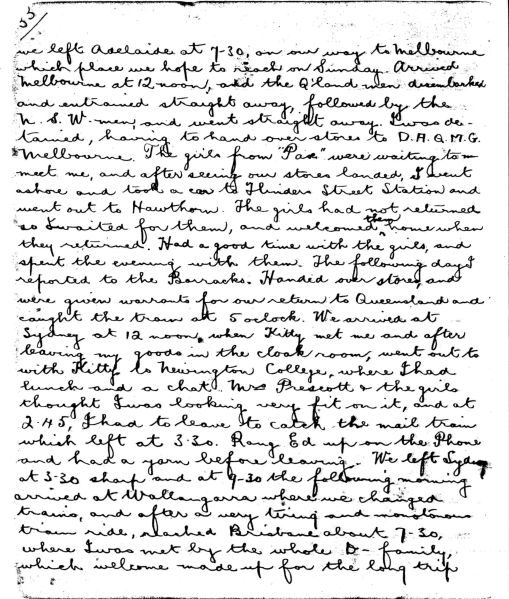 33/
we left Adelaide at 7-30, on our way to Melbourne
which place we hope to reach on Sunday. Arrived
Melbourne at 12 noon, and the Q'land men disembarked
and entrained straight away, followed by the
N. S. W. men, and went straight away. I was de-
tained, having to hand over stores to D.A.Q.M.G.
Melbourne. The girls from "Pax" were waiting to
meet me, and after seeing our stores landed, I went
ashore and took a car to Flinders Street Station and
went out to Hawthorn. The girls had not returned
so I waited for them, and welcomed them home when
they returned. Had a good time with the girls, and
spent the evening with them. The following day I
reported to the Barracks. Handed over stores, and
were given warrants for our return to Queensland and
caught the train at 5 oclock. We arrived at
Sydney at 12 noon, when Kitty met me and after
leaving my goods in the cloak room, went out to
with Kitty to Newington College, where I had
lunch and a chat. Mrs Prescott & the girls
thought I was looking very fit on it, and at
2.45, I had to leave to catch the mail train
which left at 3.30. Rang Ed up on the Phone
and had a yarn before leaving. We left Sydney
at 3-30 sharp and at 9-30 the following morning
arrived at Wallangarra where we changed
trains, and after a very tiring and monotonous
train ride, reached Brisbane about 7-30,
where I was met by the whole D- family,
which welcome made up for the long trip